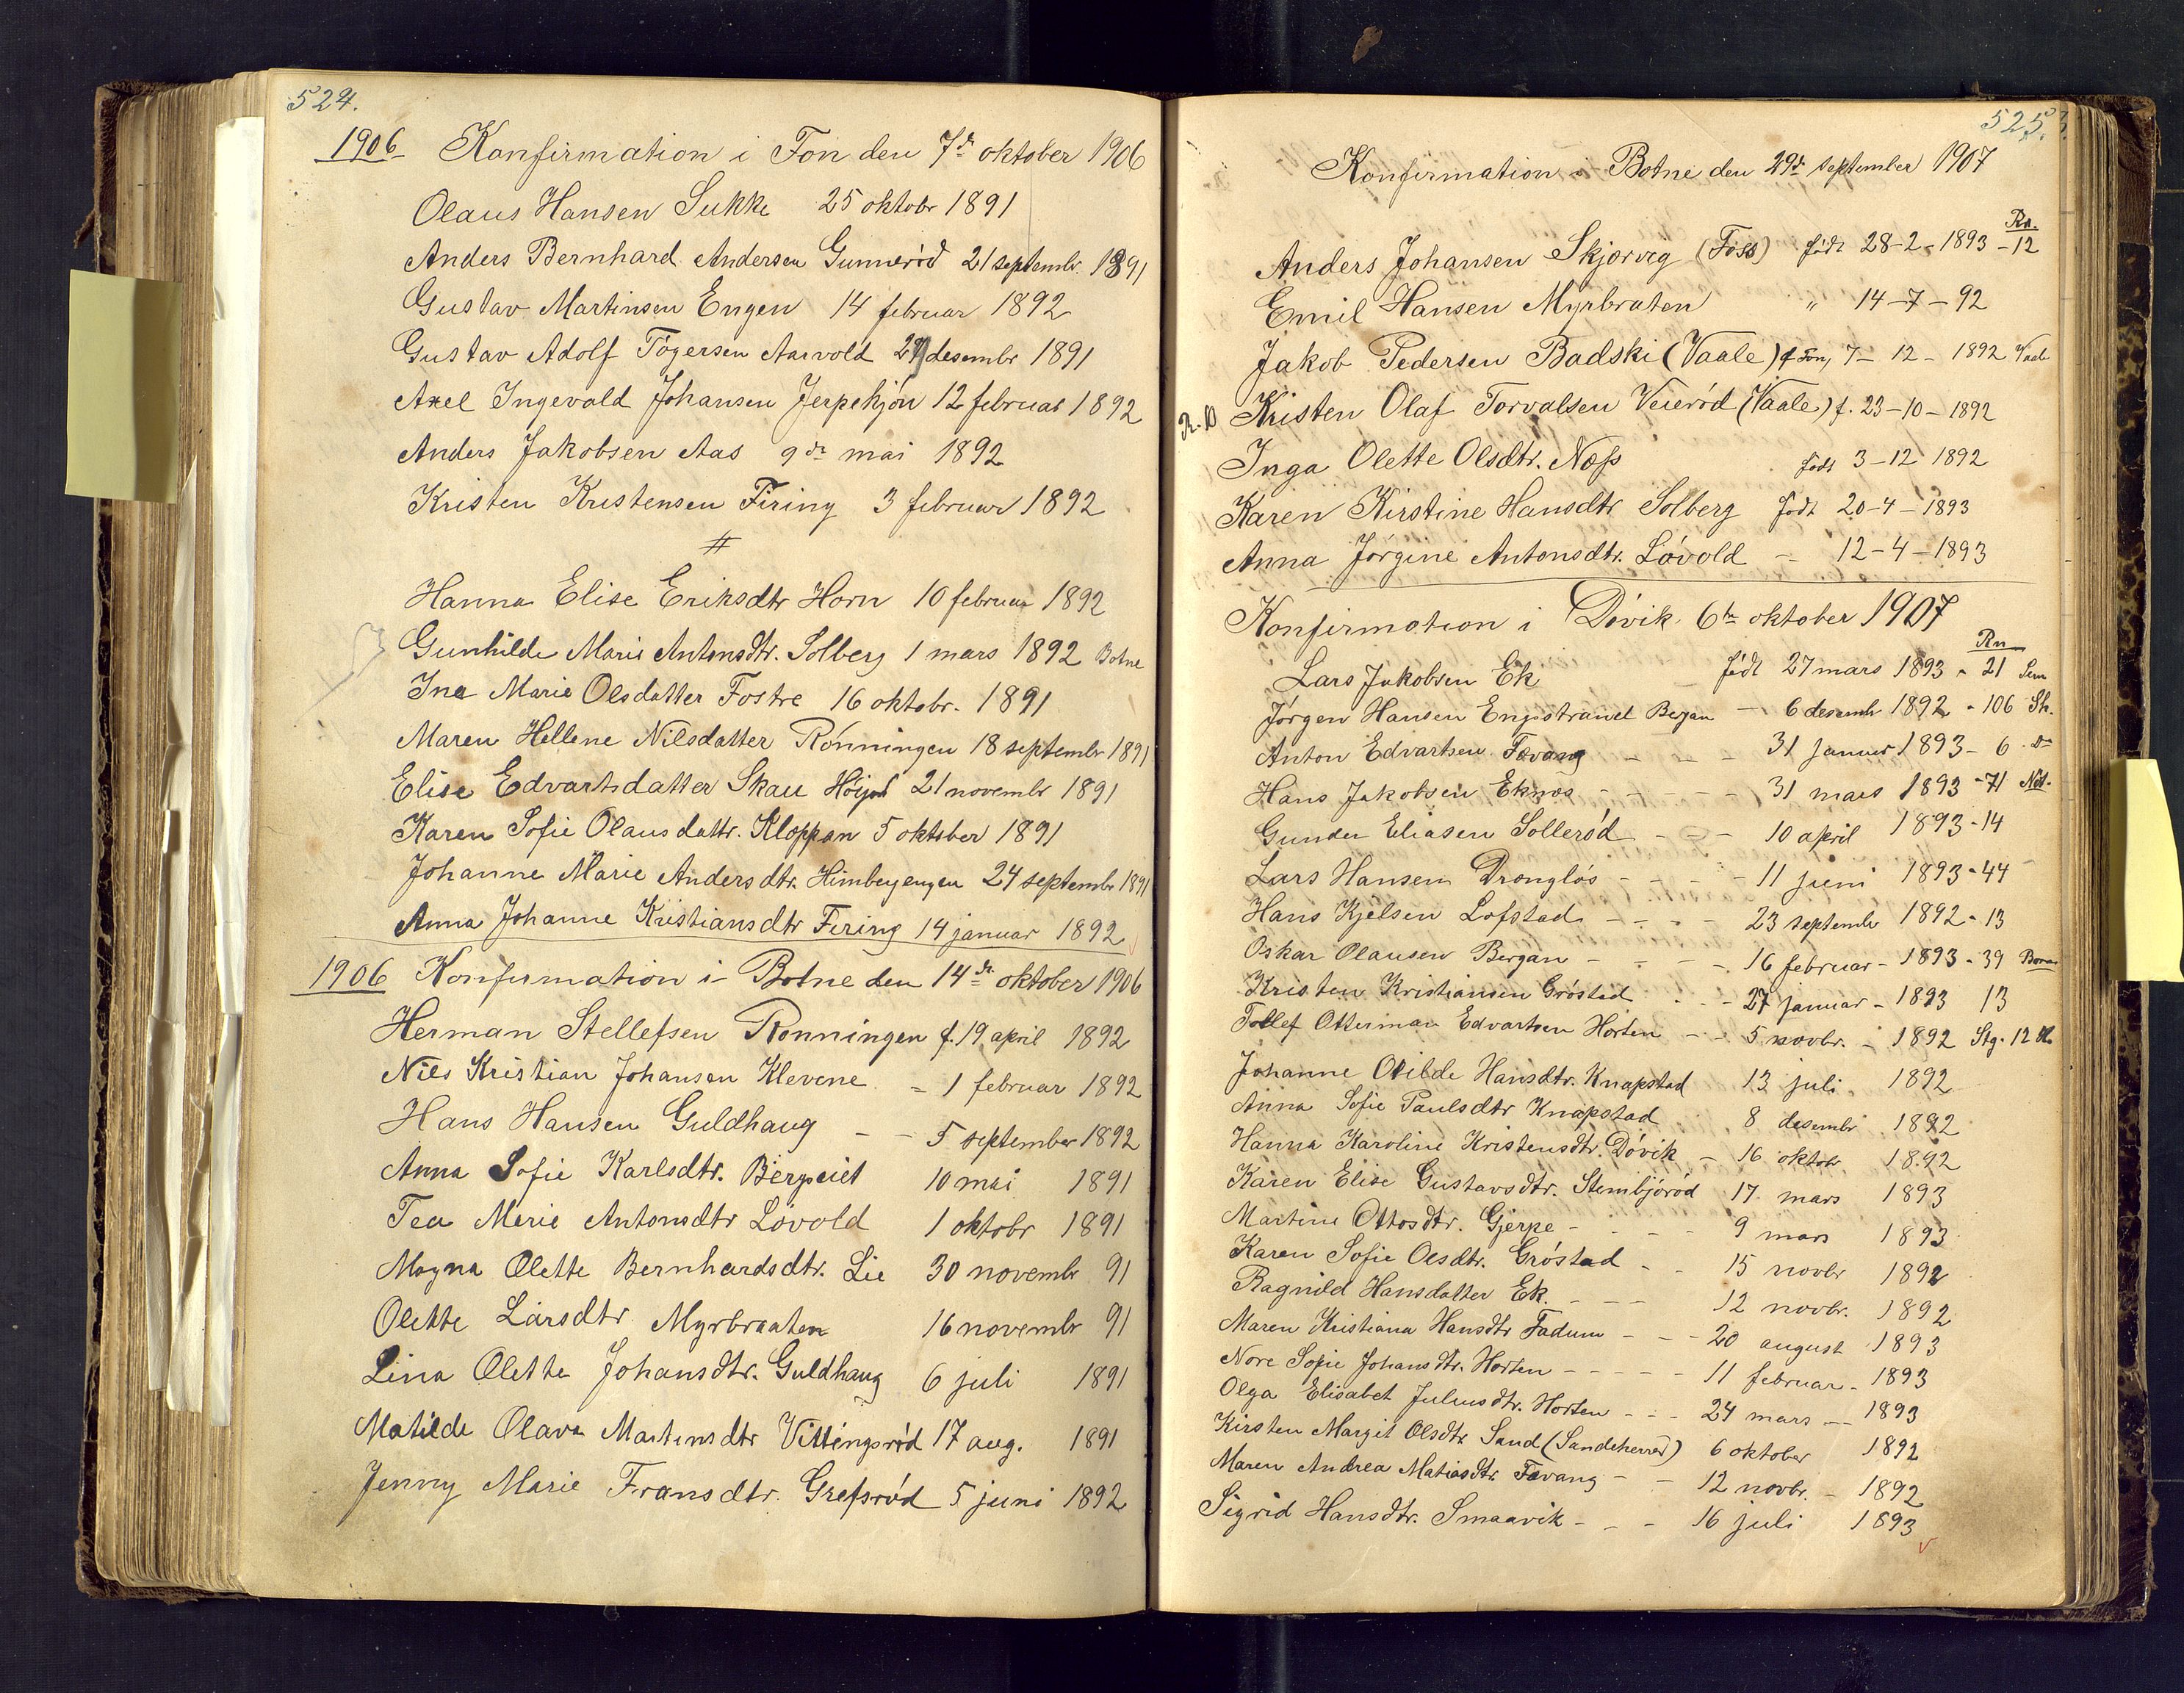 524.
1906 Konfirmation i Fon den 7de oktober 1906
Olaus Hansen Sukke 25 oktobr 1891
Anders Bernhard Andersen Gunnerød 21 septembr. 1891
Gustav Martinsen Engen 14 februar 1892
Gustav Adolf Tøgersen Aarvold 27 desembr 1891
Axel Ingevald Johansen Jerpekjøn 12 februar 1892
Anders Jakobsen Aas 9de mai 1892
Kristen Kristensen Firing 3 februar 1892
#
Hanna Elise Eriksdtr Horn 10 februar 1892
Gunhilde Marie Antonsdtr. Solberg 1 mars 1892 Botne
Ina Marie Olsdatter Fostre 16 oktobr. 1891
Maren Hellene Nilsdatter Rønningen 18 septembr 1891
Elise Edvartsdatter Skau 21 novembr 1891
Karen Sofie Olausdattr. Kloppan 5 oktober 1891
Johanne Marie Andersdtr. Himbergengen 24 septembr 1891
Anna Johanne Kristiansdtr Firing 14 januar 1892
1906 Konfirmation i Botne den 14de oktober 1906
Herman Stellefsen Rønningen f. 19 april 1892
Nils Kristian Johansen Klevene = 1 februar 1892
Hans Hansen Guldhaug - - 5 september 1892
Anna Sofie Karlsdtr. Bergeiet 10 mai 1891
Tea Marie Antonsdtr Løvold 1 oktobr 1891
Magna Olette Bernhardsdtr. Lie 30 novembr 91
Olette Larsdtr Myrbraaten 16 novembr 91
Lina Olette Johansdtr. Guldhaug 6 juli 1891
Matilde Olava Martinsdtr Vittingsrød 17 aug. 1891
Jenny Marie Fransdtr. Grefsrød 5 juni 1892
525.
Konfirmation i Botne den 29de september 1907
Rn.
Anders Johansen Skjørvig (Foss) født 28-2-1893 - 12
Emil Hansen Myrbraten " 14-7-92
Jakob Pedersen Badski (Vaale) f Fon, 7-12-1892 Vaale
R. 10 Kristen Olaf Torvalsen Veierød (Vaale) f. 23-10-1892
Inga Olette Olsdtr. Næss født 3-12 1892
Karen Kirstine Hansdtr Solberg født 20-4-1893
Anna Jørgine Antonsdtr. Løvold - 12-4-1893
Konfirmation i Døvik 6te oktober 1907
Rn
Lars Jakobsen Ek født 27 mars 1893 - 21 Sem
Jørgen Hansen Engstrand Bergan - 6 desembr 1892 - 106
Anton Edvartsen Tevang - - - 31 januar 1893 - 6
Hans Jakobsen Eknes - - - - 31 mars 1893 - 71 Nøt.
Gunder Eliasen Sollerød - - - 10 april 1893 - 14
Lars Hansen Dronglos - - - - 11 juni 1893 - 44
Hans Kjelsen Lofstad - - - - 23 septembr 1892 - 13
Oskar Olausen Bergan - - - - 16 februar - 1893 - 39
Kristen Kristiansen Grøstad - - - 27 januar - 1893 13
Tollef Otterman Edvartsen Horten - - 5 novbr. - 1892 Stg. 12
Johanne Otilde Hansdtr. Knapstad 13 juli 1892
Anna Sofie Paulsdtr Knapstad 8 desembr 1892
Hanna Karoline Kristensdtr. Døvik - 16 oktobr 1892
Karen Elise Gustavsdtr. Stenbjørød 17 mars 1893
Martine Ottosdtr. Gjerpe - - - - 9 mars 1893
Karen Sofie Olsdtr. Grøstad - - 15 novbr 1892
Ragnild Hansdatter Ek. - - - 12 novbr. 1892
Maren Kristiana Hansdtr Fadum - - - 20 august 1893
Nore Sofie Johansdtr. Horten - - - - - 11 februar - 1893
Olga Elisabet Juliusdtr. Horten - - - 24 mars - - 1893
Kirsten Margit Olsdtr Sand (Sandeherred) 6 oktober 1892
Maren Andrea Matiasdtr Tevang - - 12 novbr. - 1892
Sigrid Hansdtr. Smaavik - - - 16 juli 1893